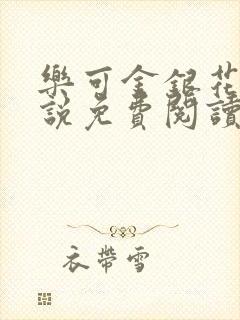 樂可金銀花
說免費閱讀
衣帶雪